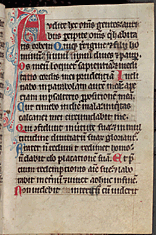 Audite hec om̄s gentes au
ribus percipite om̄s qui habita
tis orbem Quiq; terrigene et filij ho
minum simul in unum diues et pauper
Os meū loquetur sapientiā et medi
tatio cordis mei prudentiā Incli
nabo in parabolam aurē meā ape
riam in psalterio p̄positionē meā
Cur timebo in die mala iniquitas cal
canei mei circumdabit me
Qui ꝯfidunt in uirtute sua et in mul
titudine diuitiarū suarū gloriantur
Frater nō redimit redimet homo
nō dabit deo placationē suā Et p̄
cium redemptionis aīe sue et labo
rauit in et̄num et uiuet adhuc in finē
Non uidebit interitū cū uiderit